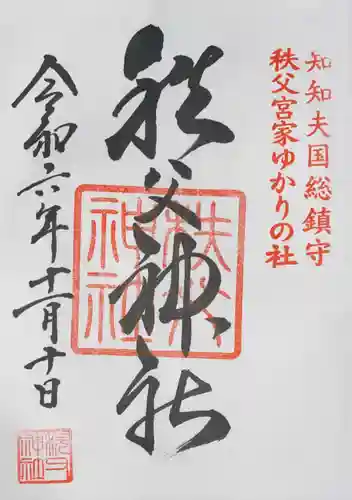 知知夫国総鎮守
秩父宮家ゆかりの社
秩父神社
秩父
神社
令和六年十一月十日
秩父
神社